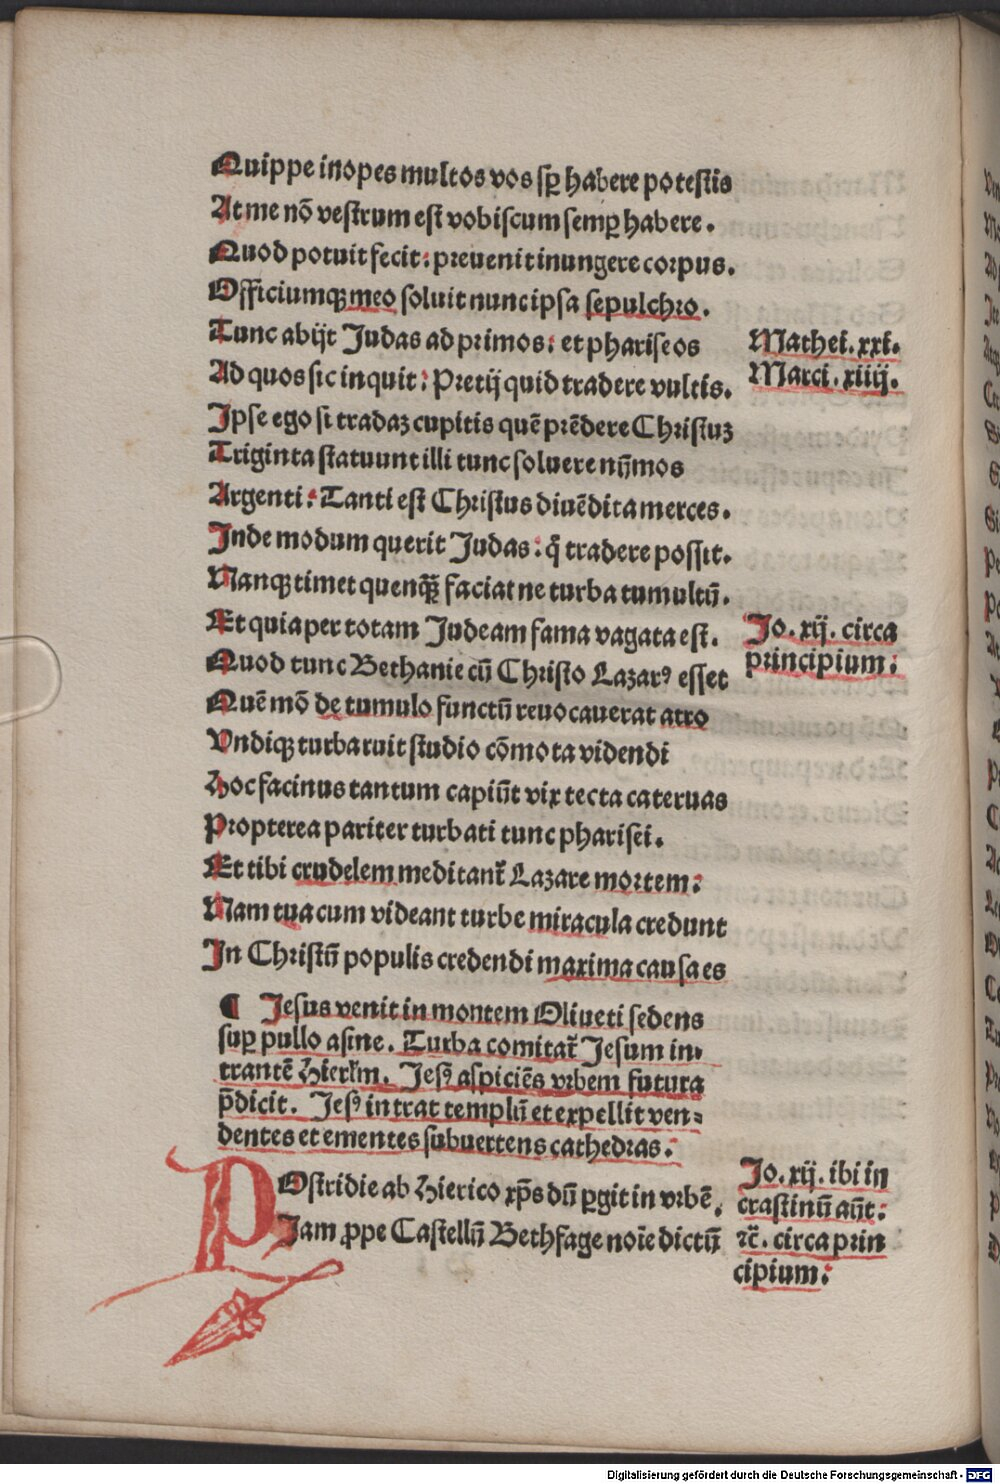 Quippe inopes multos vos sꝑ habere potestis
At me nō vestrum est vobiscum semꝑ habere.
Quod potuit fecit: preuenit inungere corpus.
Officiumqꝫ meo soluit nunc ipsa sepulchro.
Tunc abijt Judas ad primos: et phariseos
Ad quos sic inquit: Pretij quid tradere vultis.
Mathei. xxi.
Marci. xiiij.
Ipse ego si tradaꝫ cupitis quē prēdere Christuꝫ
Triginta statuunt illi tunc soluere nūmos
Argenti: Tanti est Christus diuēdita merces.
Inde modum querit Judas: q̄ tradere possit.
Nanqꝫ timet quenqꝫ̄ faciat ne turba tumultū.
Et quia per totam Judeam fama vagata est.
Quod tunc Bethanie cū Christo Lazarꝰ esset
Jo. xij. circa
principium:
Quē mō de tumulo functū reuocauerat atro
Vndiqꝫ turba ruit studio cōmota videndi
Hoc facinus tantum capiūt vix tecta cateruas
Propterea pariter turbati tunc pharisei.
Et tibi crudelem meditant᷑ Lazare mortem:
Nam tua cum videant turbe miracula credunt
In Christū populis credendi maxima causa es
¶ Jesus venit in montem Oliueti sedens
suꝑ pullo asine. Turba comitat᷑ Jesum in⸗
trantē Hierl̄m. Jesꝰ aspiciēs vrbem futura
p̄dicit. Jesꝰ intrat templū et expellit ven⸗
dentes et ementes subuertens cathedras.
POstridie ab Hierico xp̄s dū ꝑgit in vrbē.
Jam ꝓpe Castellū Bethfage noīe dictū
Jo. xij. ibi in
crastinū aūt:
ꝛc̄. circa prin
cipium:
Digitalisierung gefördert durch die Deutsche Forschungsgemeinschaft - DFG